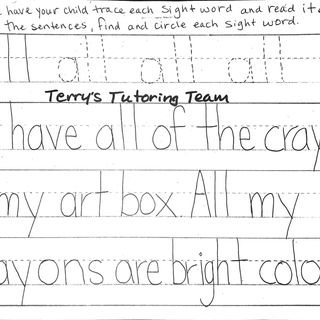 have your child trace each sight word and read it
the sentences, find and circle each sight word.
all all all all
Terry's Tutoring Team
have all of the cray
my art box. All my
ayons are bright colo